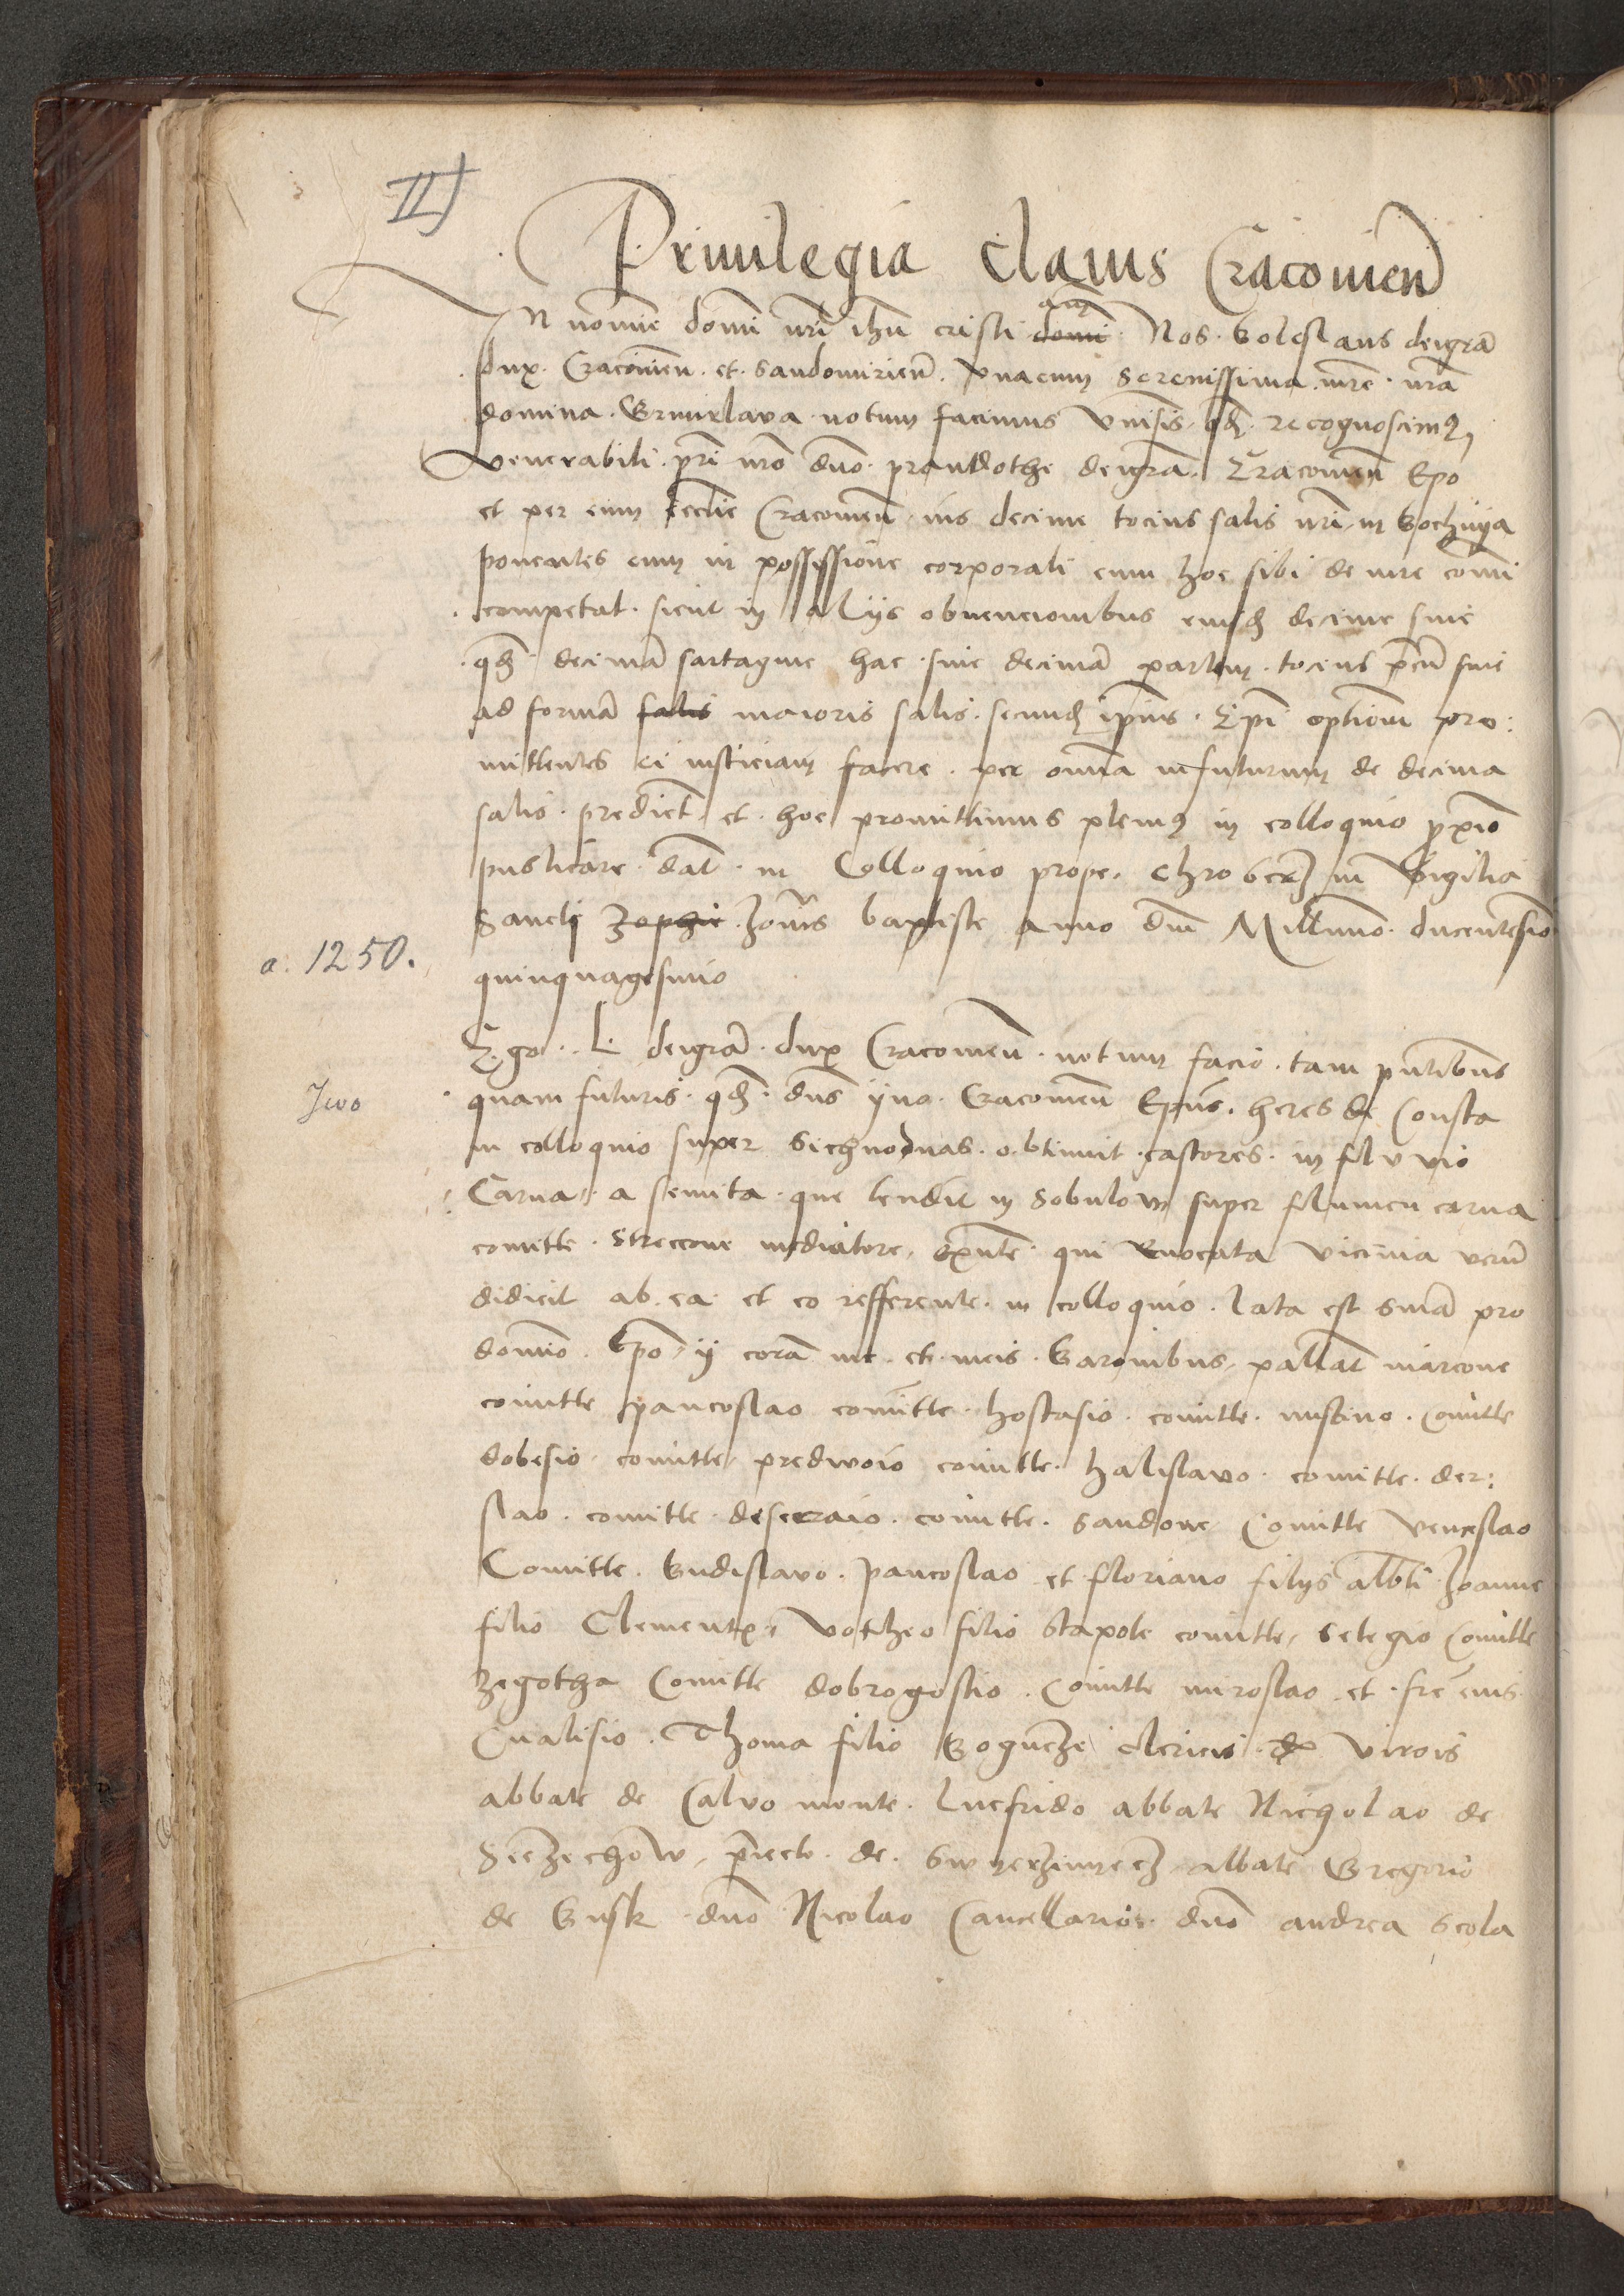 II)
Priuilegia Clauis Cracouien
IN nomine domi nri ihu cristi am̄ Nos Boleslaus deigra
dux Cracouien et Sandomirien Vnacum Serenissima mre nra
domina Grimislava notum facimus Vniuersis qd recognoscimus
venerabili pri nro dno prandothe deigra Cracouien Epo
et per eum eccie Cracouien ius decime tocius salis nri in Bochnya
ponentes eum in possessione corporali cum hoc sibi de iure comi
competat sicut in alijs obuencionibus eiusd decime siue
qd decima sartagine hac siue decima partem tocius siue
ad forma salis maioris salis secund ipius Epi optiom pro:
mittentes ei iusticiam facere per omia infuturum de decima
salis predict et hoc promittimus plenius in colloquio proxio
puslicare dat in Colloquio prope Chroberz in Vigilia
Sancti Joais baptiste anno dni Millimo ducentesio
a. 1250.
quinquagesimo
Ego L deigra dux Cracouien notum facio tam pntibus
Iwo
quam futuris qd dns yuo Cracouien Epus heres de Consca
in colloquio super Sichnodnas obtinuit castores in fluuio
Carna a semita que tendit in Sobulow super flumen carna
comitte Streccone mediatore exnte qui euocata vicinia veru
didicit ab ea et eo refferente in colloquio lata est snia pro
domio Epo y cora me et meis Baronibus pallat marcone
comitte pancoslao comitte hostasio comitte mistiuo Comitte
dobesio comitte predwoio comitte halislavo comitte der:
slao comitte desceraio comitte Sandone Comitte Venceslao
Comitte Budislavo pancoslao et floriano filijs albti Joanne
filio Clementis Votzheo filio Stapole comitte Setegio Comitte
Zegotha Comitte dobrogostio Comitte miroslao et fre eius
Cualisio Thoma filio Boguze clericis Virois
abbate de Calvo monte lucfrido abbate Nicholao de
Siezechow de Swyerzinyecz abbate Gregorio
de Busk dno Nicolao Cancellario dno andrea Scola